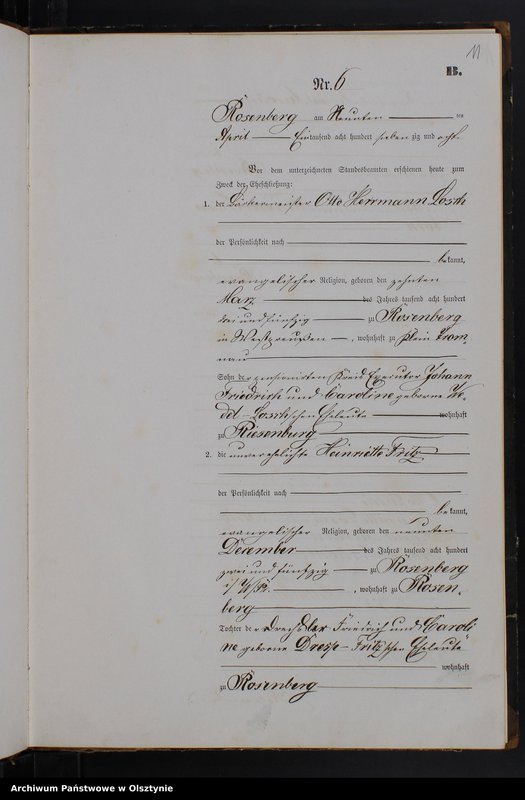 11
B.
Nr. 6
Rosenberg am Neunten ten
April Eintausend acht hundert sieben zig und acht.
Vor dem unterzeichneten Standesbeamten erschienen heute zum
Zweck der Eheschließung:
1. der Bäckermeister Otto Herrmann Losch
der Persönlichkeit nach
bekannt,
evangelischer Religion, geboren den zehnten
März des Jahres tausend acht hundert
drei und fünfzig zu Rosenberg
in Westpreußen, wohnhaft zu Klein Trom-
nau
Sohn der pensionirten Kreis Executor Johann
Friedrich und Caroline geborne
Losch'schen Eheleute wohnhaft
zu Riesenburg
2. die unverehelichte Heinriette Fritz
der Persönlichkeit nach
bekannt,
evangelischer Religion, geboren den neunten
December des Jahres tausend acht hundert
zwei und fünfzig zu Rosenberg
i/ W/Pr., wohnhaft zu Rosen-
berg
Tochter der Drechsler Friedrich und Caroli-
ne geborne Fritz'schen Eheleute
wohnhaft
zu Rosenberg
Archiwum Państwowe w Olsztynie